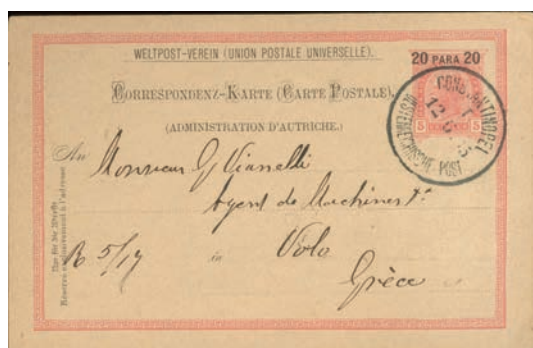 WELTPOST-VEREIN (UNION POSTALE UNIVERSELLE).
20 PARA 20
CORRESPONDENZ-KARTE (CARTE POSTALE)
(ADMINISTRATION D'AUTRICHE.)
CONSTANTINOPEL
I
12
ÖSTERREICHISCHE-POST
5 5
An Monsieur G. Vianelli
Agent de Machines &ª
R 5/17 in Volo
Grèce
Nur für die Adresse
Réservé exclusivement à l'adresse